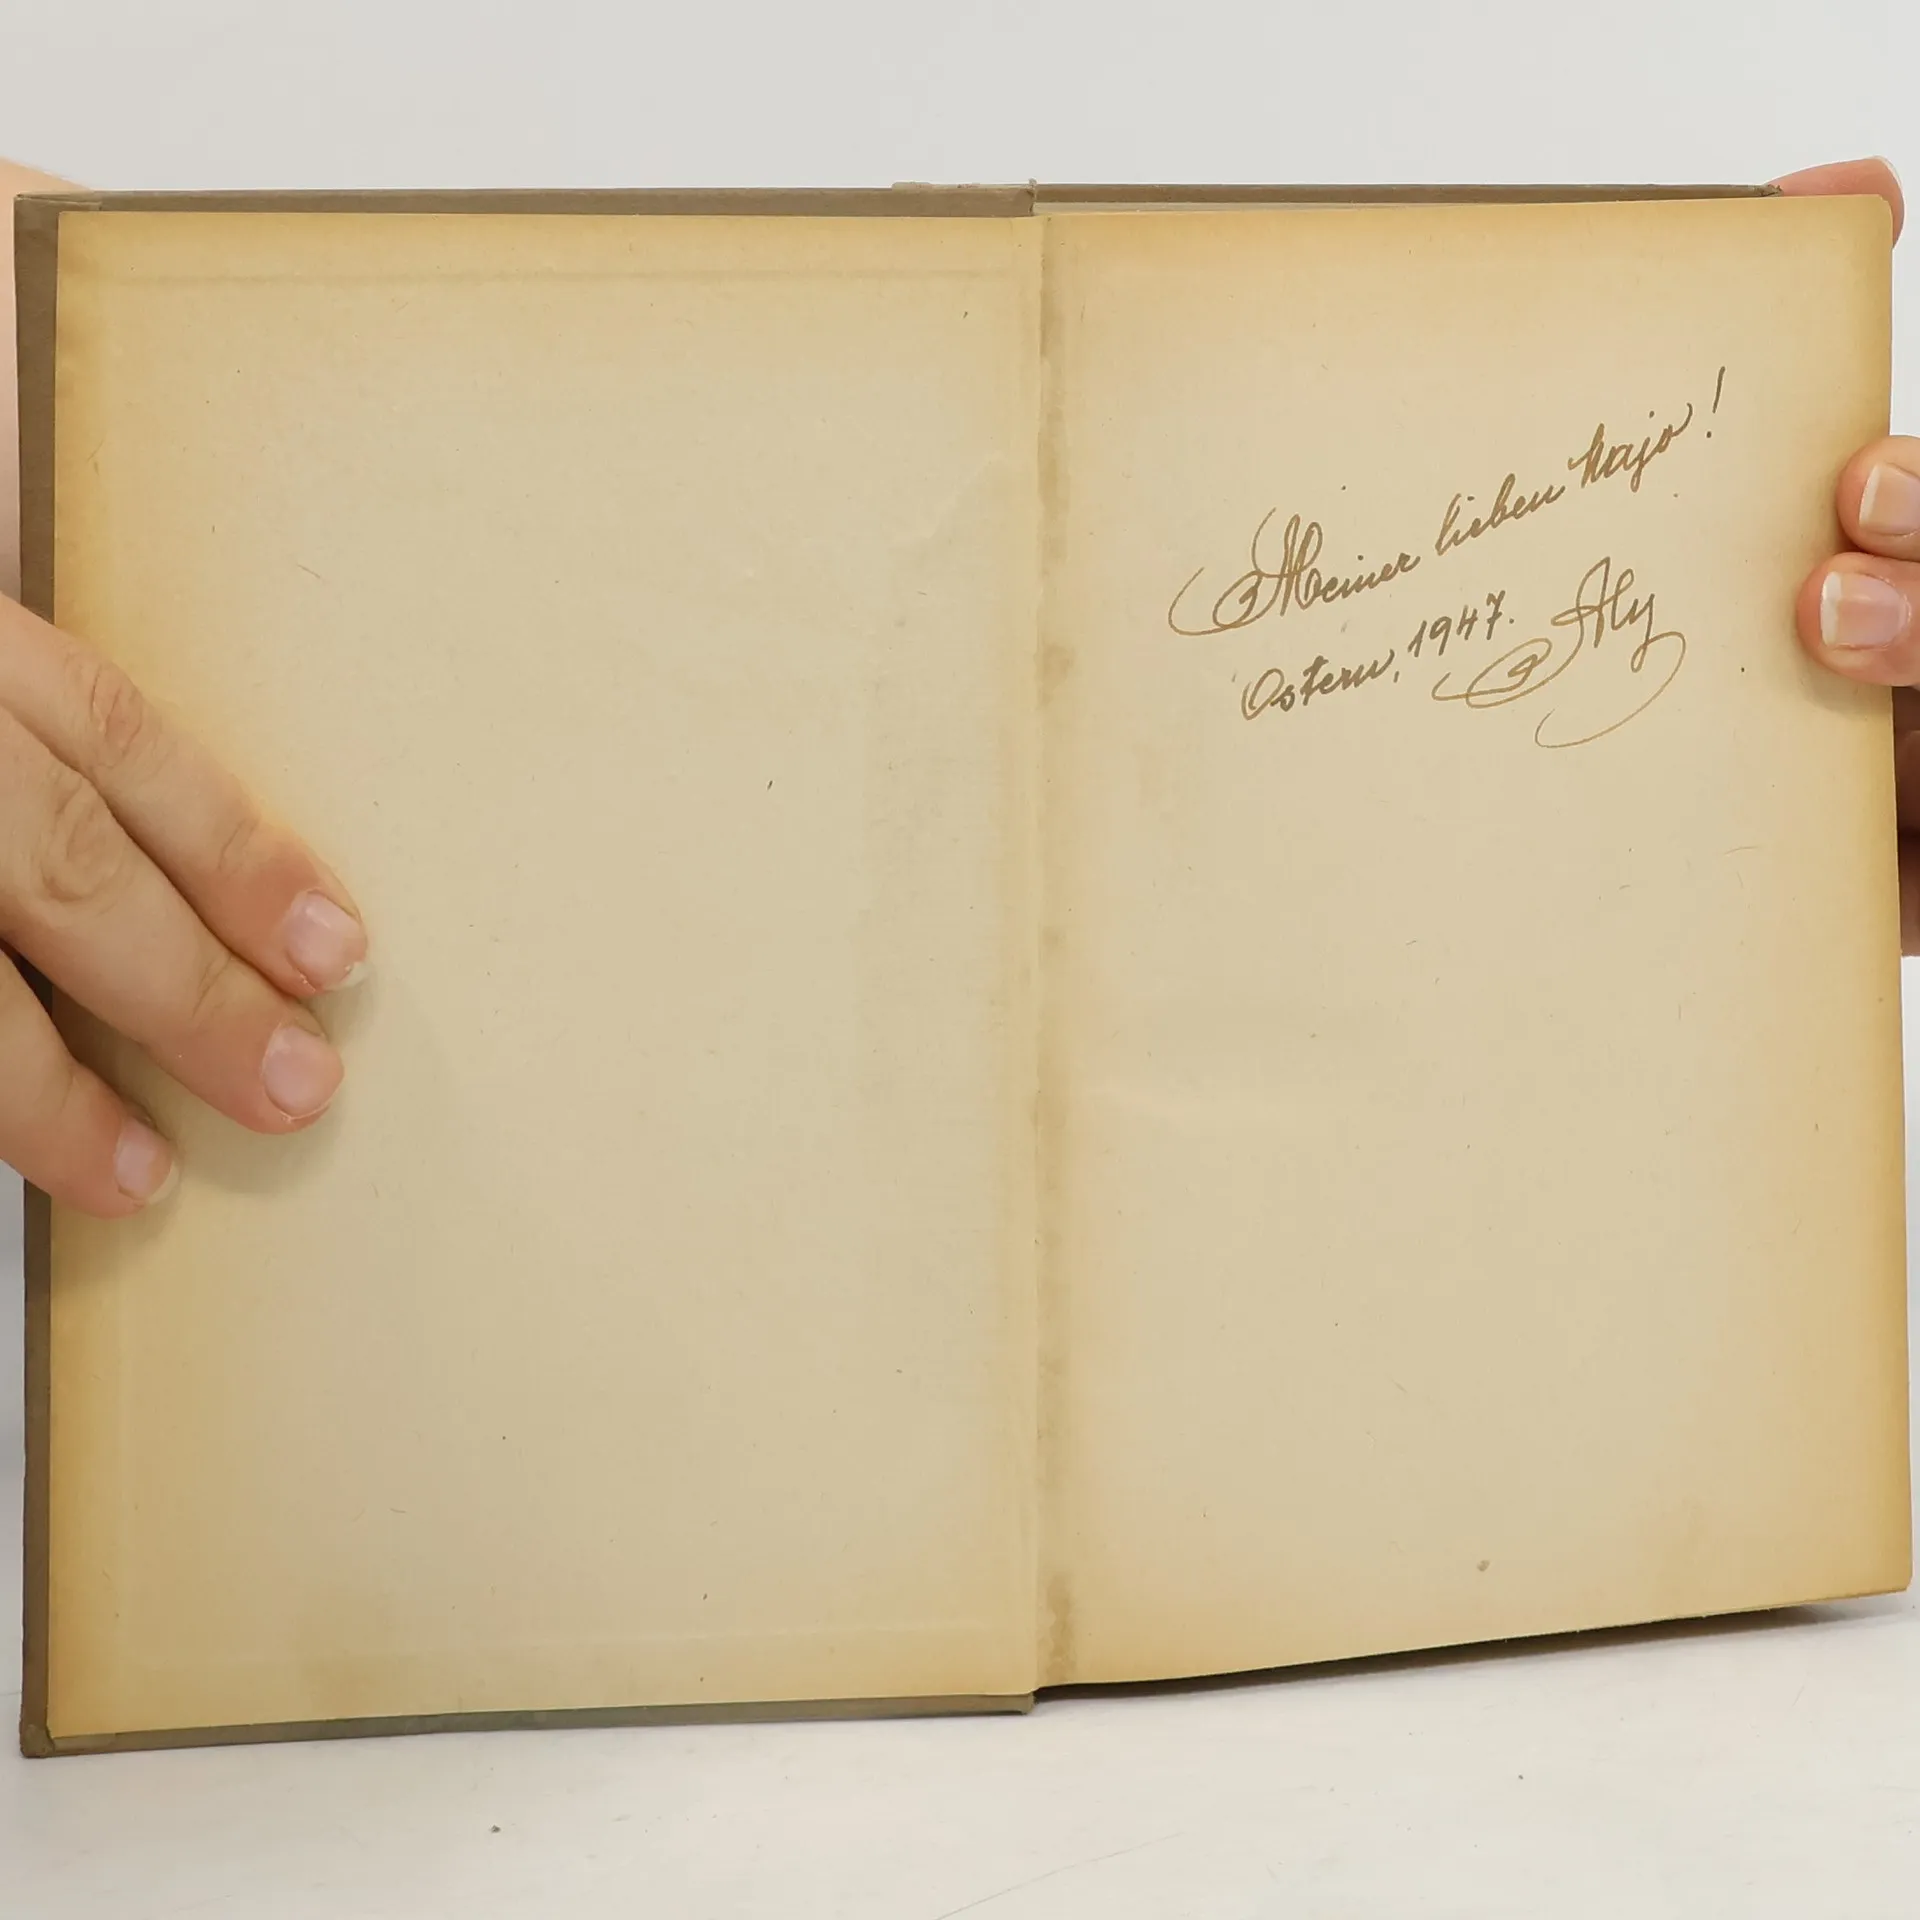 Meiner lieben Kajo!
Ostern, 1947. Aly